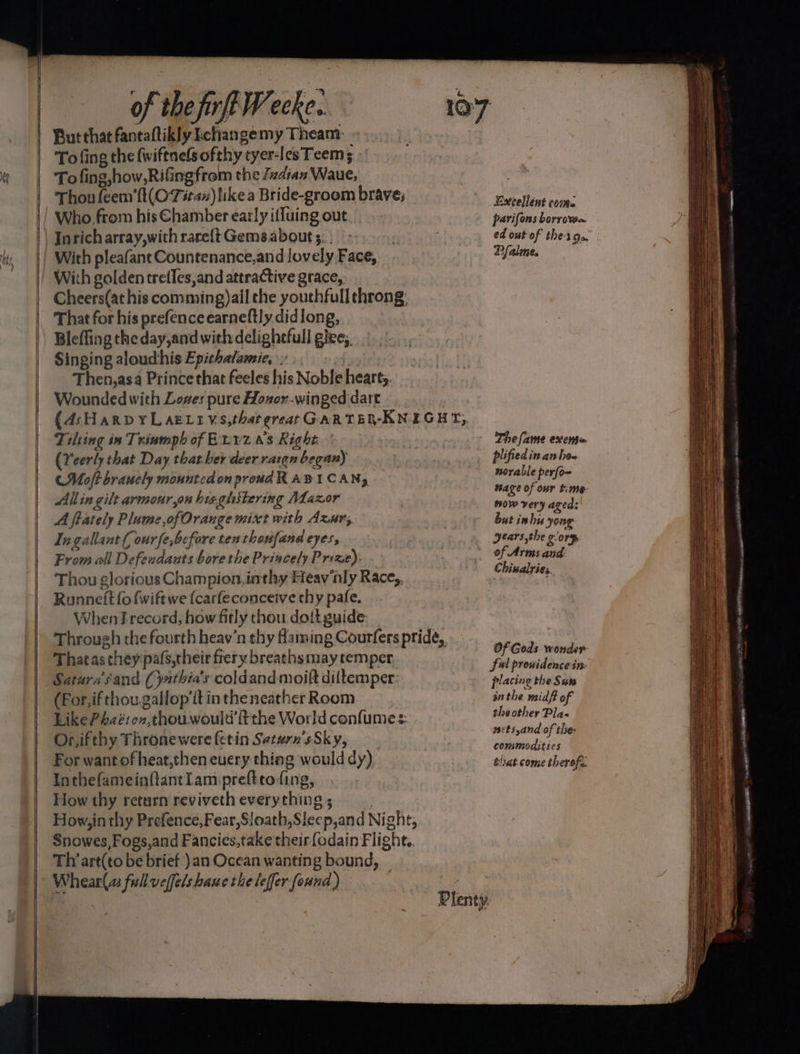 of the first Weeke. 107
But that fantastikly I change my Theam
To sing the swiftnes of thy tyer-les Teem;
To sing, how, Rising from the Indian Waue,
Thou seem'st (O Titan) like a Bride-groom braue,
Who from his Chamber early issuing out
In rich array, with rarest Gems about;
With pleasant Countenance, and lovely Face,
With golden tresses, and attractive grace,
Cheers (at his comming) all the youthfull throng
That for his presence earnestly did long,
Blessing the day, and with delightfull glee,
Singing aloud his Epithalamie,
Then, as a Prince that feeles his Noble heart,
Wounded with Loues pure Honor-winged dart
(As HARDY LAELIVS, that great GARTER-KNIGHT,
Tilting in Triumph of ELIZA's Right
(Yeerly that Day that her deer raign began)
Most brauely mounted on proud RABICAN,
All in gilt armour, on his glistering Mazor
A stately Plume, of Orange mixt with Azur,
In gallant Course, before ten thousand eyes,
From all Defendants bore the Princely Prize)
Thou glorious Champion, in thy Heav'nly Race,
Runnest so swift we scarse conceive thy pase.
When I record, how fitly thou dost guide
Through the fourth heav'n thy flaming Coursers pride,
That as they pass, their fiery breaths may temper
Saturn's and Cynthia's cold and moist distemper:
(For, if thou gallop'st in the neather Room
Like Phaëton, thou would'st the World consume:
Or, if thy Throne were set in Saturn's Sky,
For want of heat, then euery thing would dy)
In the same instant I am prest to sing,
How thy return reviveth every thing;
How, in thy Presence, Fear, Sloath, Sleep, and Night,
Snowes, Fogs, and Fancies, take their sodain Flight.
Th'art (to be brief) an Ocean wanting bound,
Whear (as full vessels haue the lesser sound)
Plenty
Excellent com-
parisons borrow-
ed out of the 19.
Psalme.
The same exem-
plified in an ho-
norable perso-
nage of our time
now very aged:
but in his yong
years, the glory
of Arms and
Chiualrie.
Of Gods wonder-
ful prouidence in
placing the Sun
in the midst of
the other Pla-
nets, and of the
commodities
that come therof.